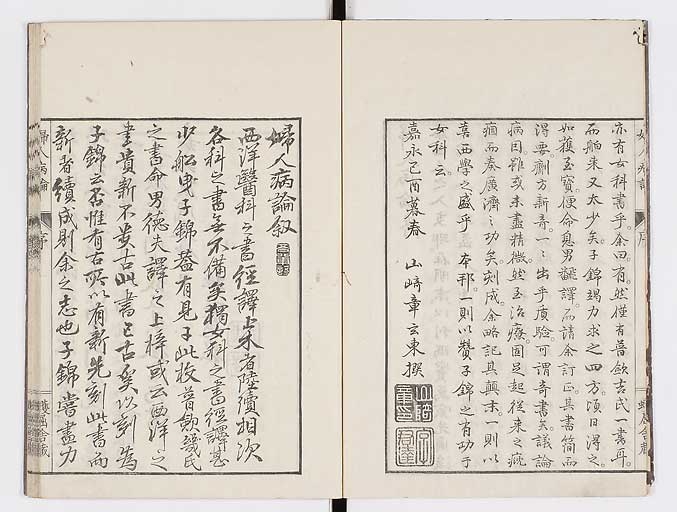 亦有女科書乎。余曰。有。然僅有昔歇吉氏一書耳。
而舶来又太少矣。子錦竭力求之四方。頃日得之。
如獲至寶。便命息男翻譯。而請余訂正。其書簡而
得要。劑方新奇。一一出乎實驗。可謂奇書矣。議論
病因雖或未盡精微。然至治療。固足起從来之
而奏廣濟之功矣。刻成。余略記其顛末。一則以
喜西學之盛乎 本邦。一則以贊子錦之有功于
女科云。
嘉永己酉暮春 山崎章玄東撰
婦人病論叙
西洋醫科之書經譯上木者陸續相次
各科之書無不備矣獨女科之書經譯甚
少船曳子錦蓋有見于此
之書命男德夫譯之上梓或云西洋之
書貴新不貴古此書已古矣以刻為
子錦云否惟有古所以有新先刻此書而
新者續成則余之志也子錦嘗盡力
婦人病論
序